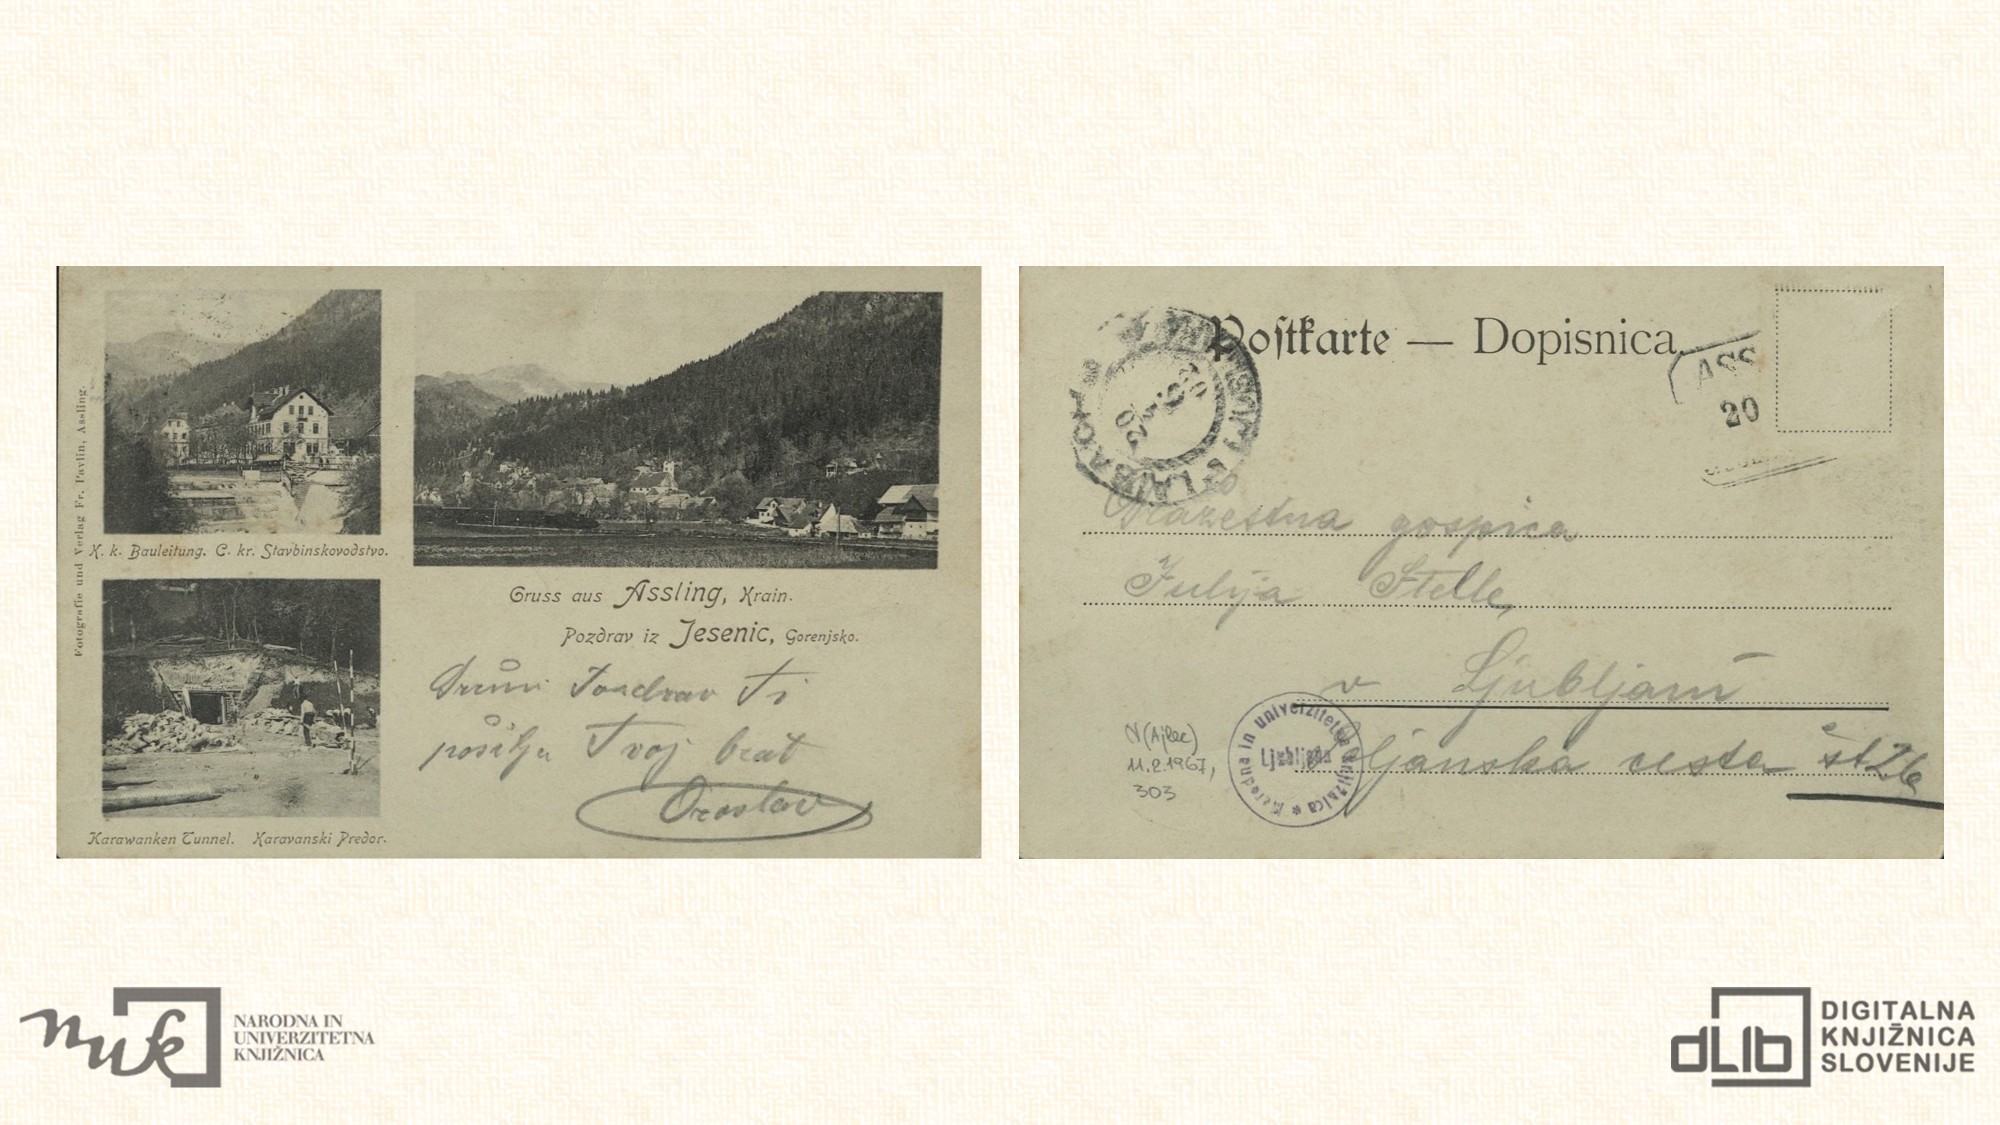 Fotografie und Verlag Fr. Pavlin, Assling.
K. k. Bauleitung. C. kr. Stavbinskovodstvo.
Karawanken Tunnel. Karavanski Predor.
Gruss aus Assling, Krain.
Pozdrav iz Jesenic, Gorenjsko.
Ti
pošilja Tvoj brat
Postkarte — Dopisnica.
LAIBACH
20
ASS
20
gospica
Julija Stelle,
v Ljubljani
cesta št 26
N(Ajlec)
11.2.1967,
303
Narodna in univerzitetna knjižnica
Ljubljana
nuk
NARODNA IN
UNIVERZITETNA
KNJIŽNICA
dLib
DIGITALNA
KNJIŽNICA
SLOVENIJE